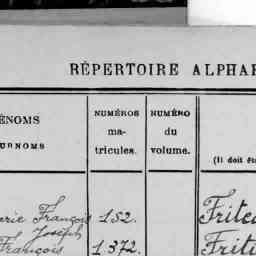 RÉPERTOIRE ALPHA
ÉNOMS
URNOMS
NUMÉROS
ma-
tricules.
NUMÉRO
du
volume.
(Il doit êt
erie François 152.
Joseph
François 1372.